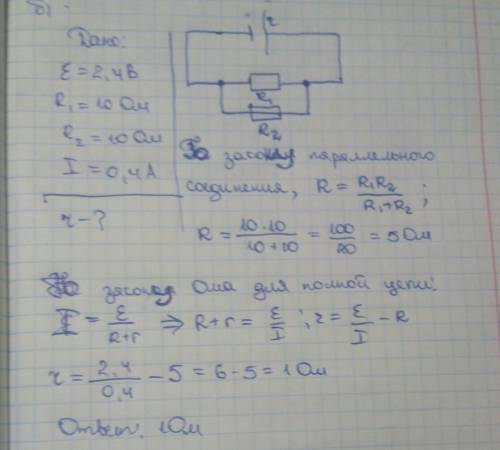 б)
Дано:
ε = 2,4 В
R₁ = 10 Ом
R₂ = 10 Ом
I = 0,4 А
r - ?
r
R₁
R₂
По закону параллельного
соединения, R = R₁R₂ / R₁+R₂ ;
R = 10·10 / 10+10 = 100 / 20 = 5 Ом
По закону Ома для полной цепи:
I = ε / R+r ⇒ R+r = ε / I ; r = ε / I - R
r = 2,4 / 0,4 - 5 = 6-5 = 1 Ом
Ответ. 1 Ом